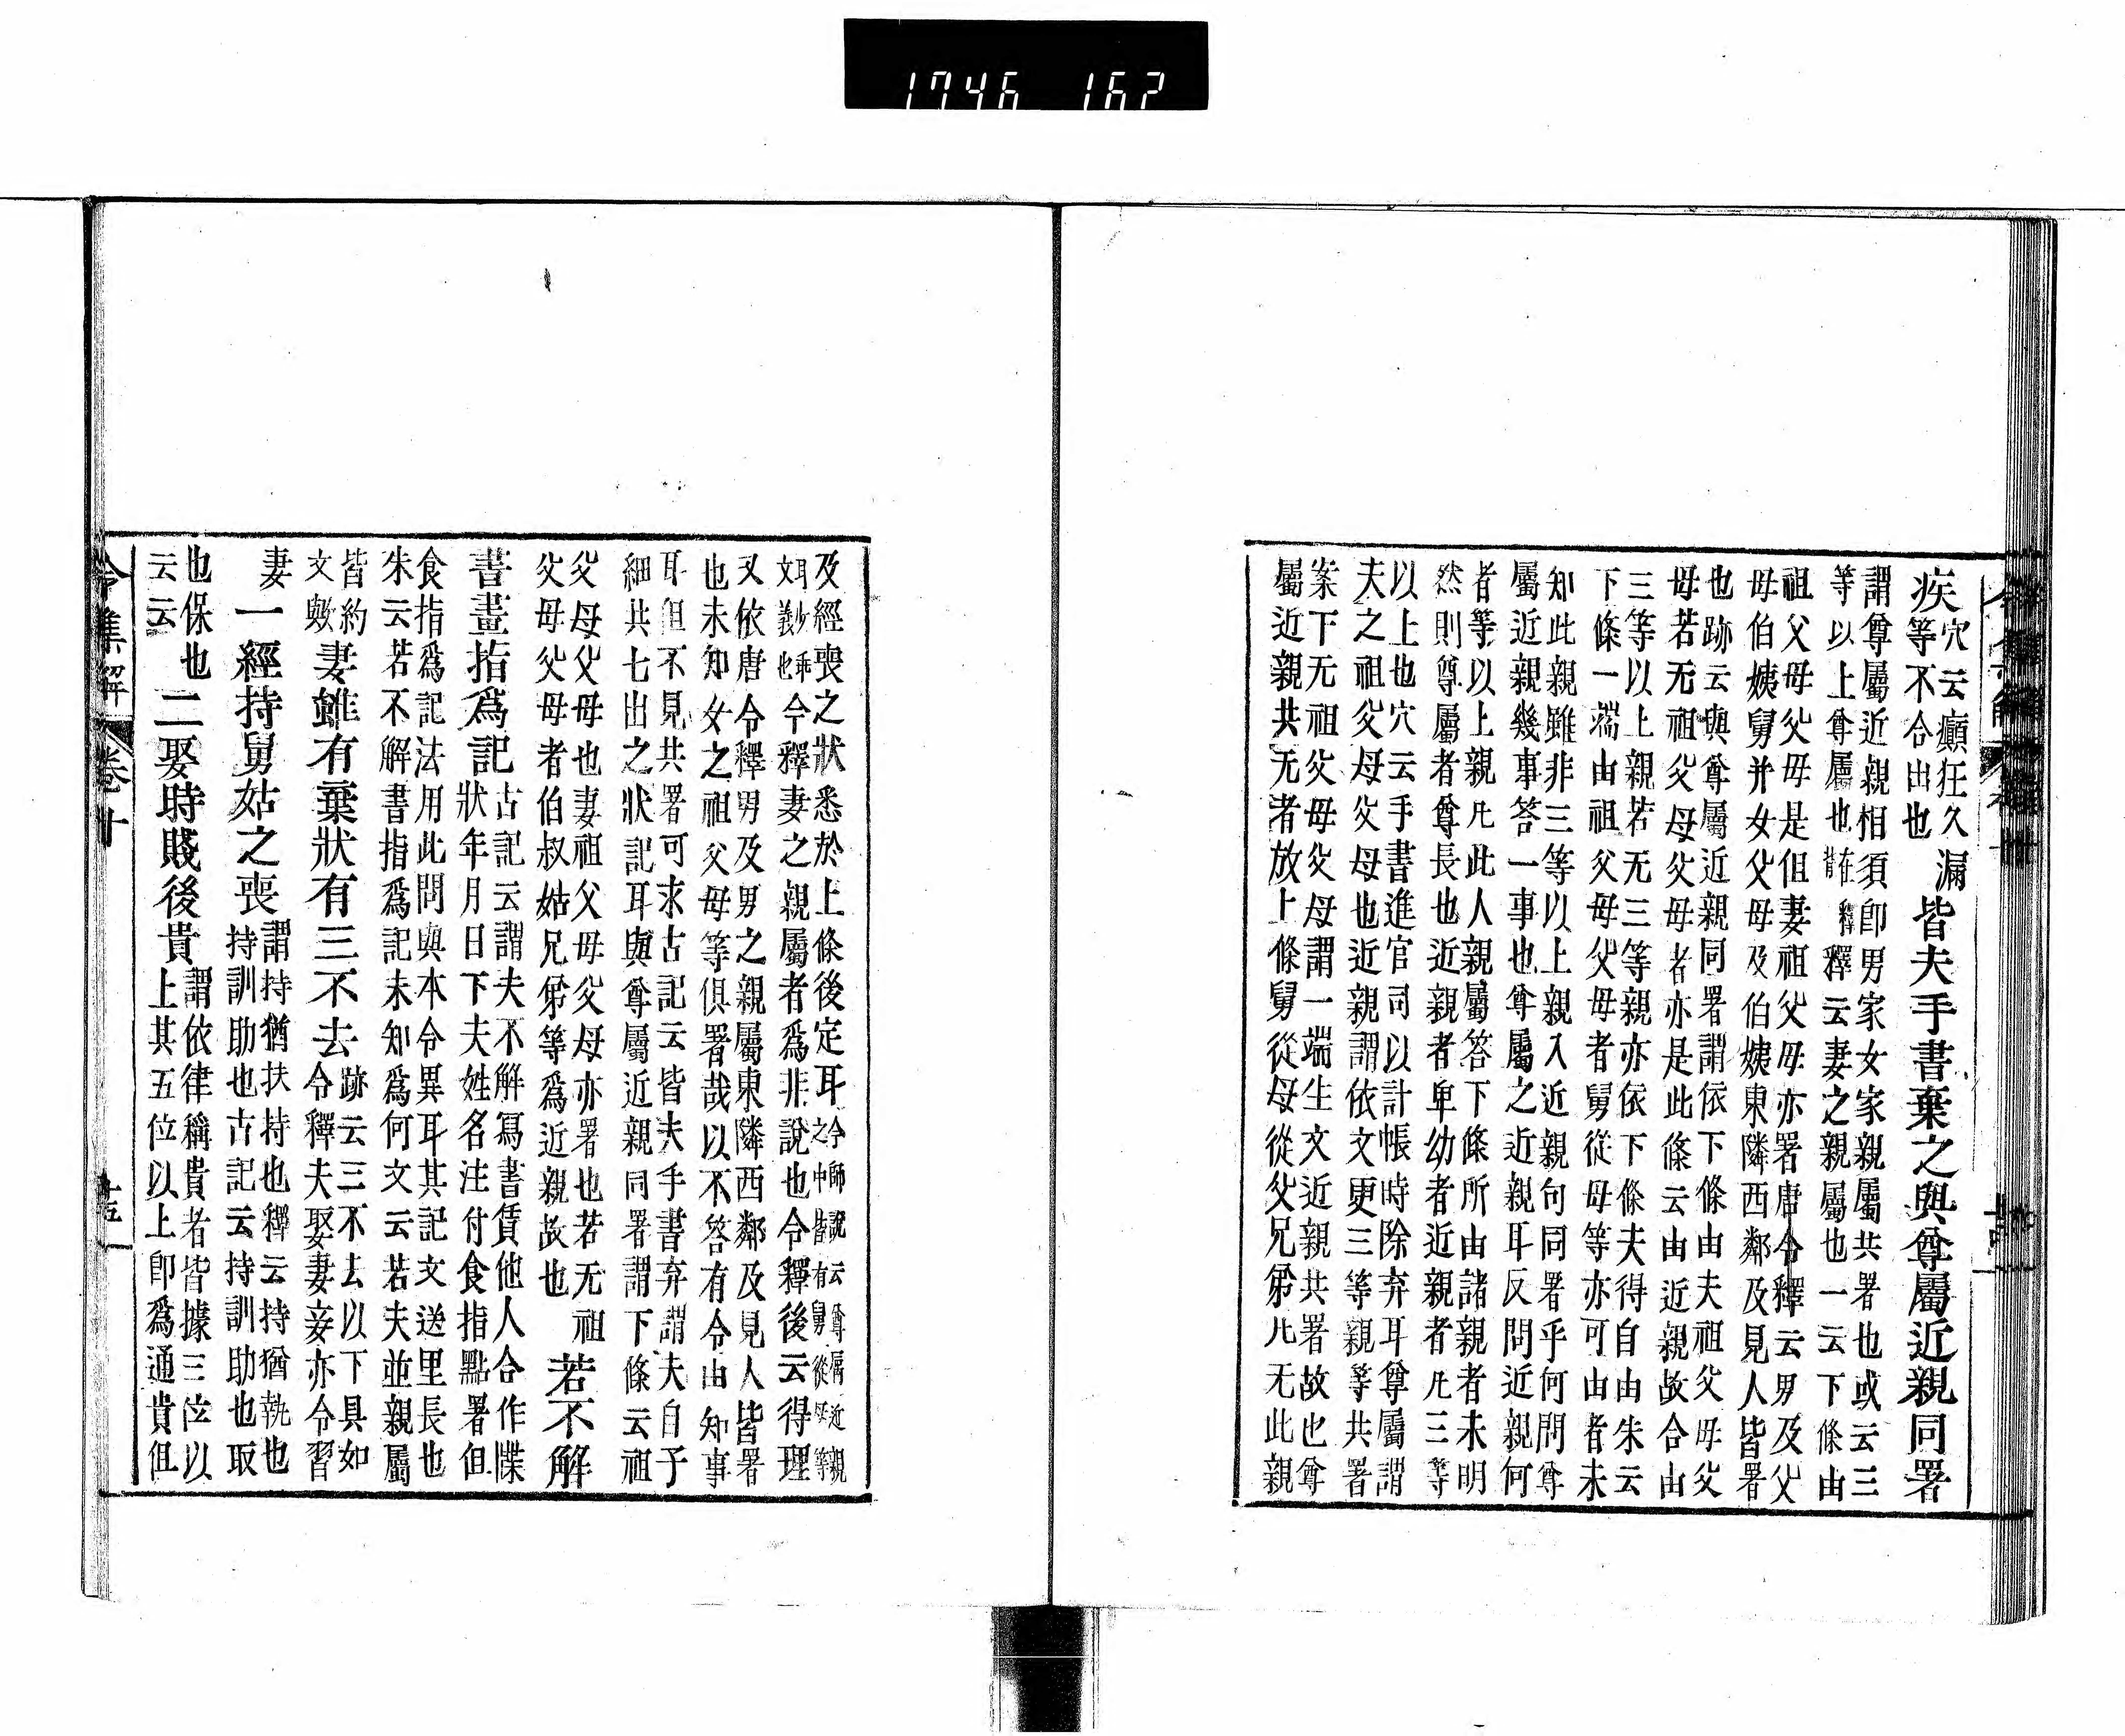 1746 162
穴云癲狂久漏
疾等不合出也
皆夫手書棄之與尊屬近親同署
謂尊屬近親相須卽男家女家親屬共署也或云三
等以上尊屬也在釋背釋云妻之親屬也一云下條由
祖父母父母是但妻祖父母亦署唐令釋云男及父
母伯姨舅并女父母及伯姨東隣西鄰及見人皆署
也跡云與尊屬近親同署謂依下條由夫祖父母父
母若无祖父母父母者亦是此條云由近親故合由
三等以上親若无三等親亦依下條夫得自由朱云
下條一端由祖父母父母者舅從母等亦可由者未
知此親雖非三等以上親入近親句同署乎何問尊
屬近親幾事答一事也尊屬之近親耳反問近親何
者等以上親凡此人親屬答下條所由諸親者未明
然則尊屬者尊長也近親者卑幼者近親者凡三等
以上也穴云手書進官司以計帳時除弃耳尊屬謂
夫之祖父母父母也近親謂依文更三等親等共署
案下无祖父母父母謂一端生文近親共署故也尊
屬近親共无者放上條舅從母從父兄弟凡无此親
及經喪之狀悉於上條後定耳令師說云尊屬近親
之中皆有舅從母等
耳妙乖
文義也
令釋妻之親屬者爲非說也令釋後云得理
又依唐令釋男及男之親屬東隣西鄰及見人皆署
也未知女之祖父母等俱署哉以不答有令由知事
耳但不見共署可求古記云皆夫手書弃謂夫自予
細共七出之狀記耳與尊屬近親同署謂下條云祖
父母父母也妻祖父母父母亦署也若无祖
父母父母者伯叔姑兄弟等爲近親故也
若不解
書畫指爲記
古記云謂夫不解寫書賃他人合作牒
狀年月日下夫姓名注付食指點署但
食指爲記法用此問與本令異耳其記文送里長也
朱云若不解書指爲記未知爲何文云若夫並親屬
皆約
文歟
妻雖有棄狀有三不去
跡云三不去以下具如
令釋夫娶妻妾亦令習
妻
一經持舅姑之喪
謂持猶扶持也釋云持猶執也
持訓助也古記云持訓助也取
也保也
云云
二娶時賤後貴
謂依律稱貴者皆據三位以
上其五位以上卽爲通貴但
令集解 卷十 十五